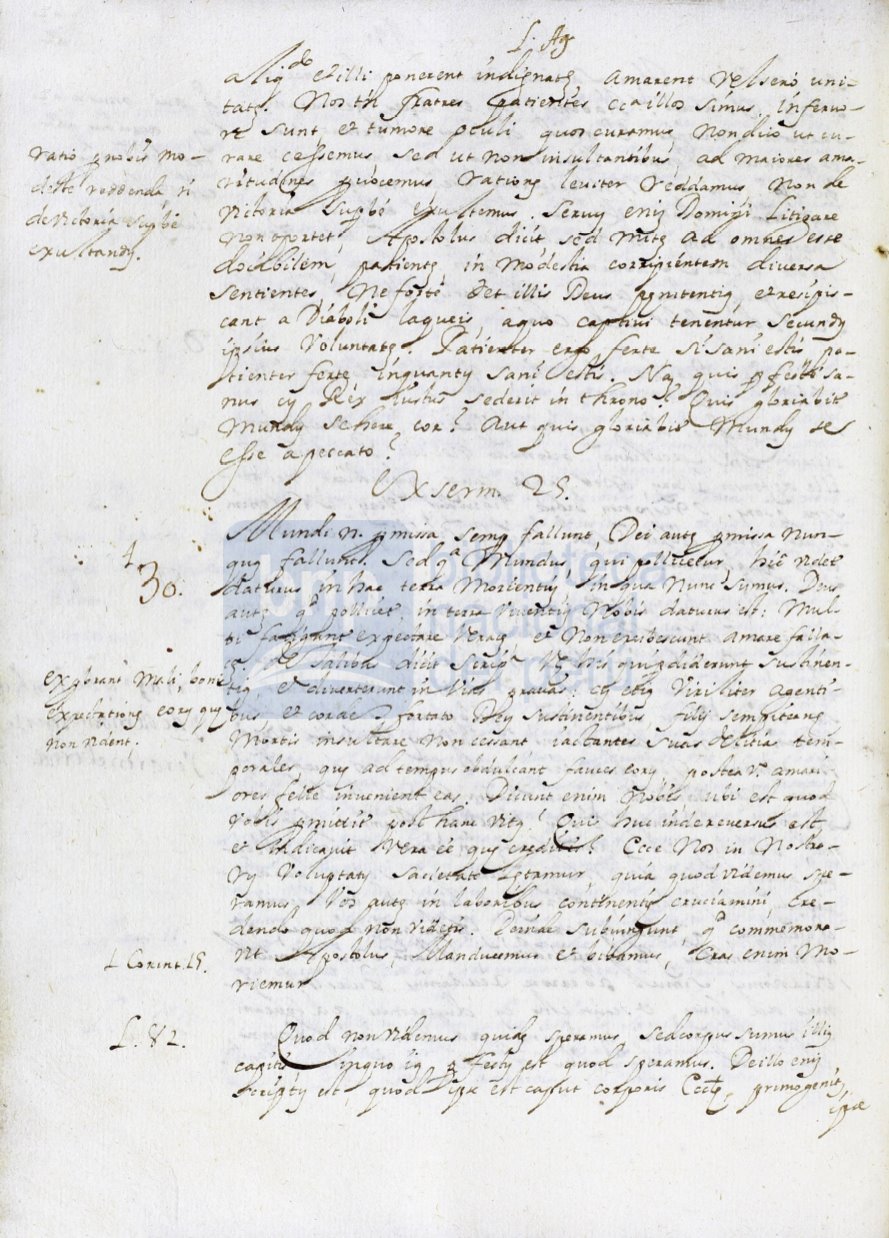 S. Ag
aliqdo et illi ponerent indignatę amarent vel serò uni-
tatę. Nos tn̄ fratres patientes ca illos simus, in fervo-
re sunt et tumore oculi quos curamus, non dico ut cu-
rare cessemus sed ut non insultantibus ad maiores ama-
ritudines provocemus rationę leviter reddamus non de
victoria supbè exultemus. Servuy enį Domini litigare
non oportet, Apostolus dicit sed mitę ad omnes esse
docibilem, patientę, in modestia corripientem diversa
sentientes, Ne fortè det illis Deus pęnitentię, et resipis-
cant a Diaboli laqueis, a quo captivi tenentur secundy
ipsius voluntatę. Patienter ergo ferte si sani estis, pa-
tienter ferte inquanty sani estis. Na quis pfectè sa-
nus cy Rex iustus sederit in throno? Quis gloriabit
mundy se here cor? Aut quis gloriabit mundy se
esse a peccato?
ratio nobis mo-
destè reddenda, ń
de victoria supbè
exultandy.
Ex serm. 25.
Mundi n. pmissa semp fallunt, Dei autę pmissa nun-
quą fallunt. Sed qa Mundus, qui pollicetur hic videt
daturus in hac terra morientiy in qua nunc sumus. Deus
autę qd pollicet, in terra viventiy nobis daturus est: mul-
ti fatigant expectare veracę et non erubescunt amare falla-
cę de talibus dicit Script. Vę his qui pdiderunt sustinen-
tię, et diverterunt in vias pravas: cy etię viriliter agenti-
bus et corde confortato Dey sustinentibus, filij sempiternę
mortis insultare non cessant iactantes suas delitias tem-
porales quę ad tempus obdulcant fauces eory, postea v. amari-
ores felle invenient eas. Dicunt enim nobis ubi est quod
vobis pmittit post hanc vitę? Quis huc inde reversus est
et indicavit vera ee quę creditis? Ecce nos in nostra-
ry voluptaty sacietate lętamur, quia quod videmus spe-
ramus, Vos autę in laboribus continentię cruciamini, cre-
dendo quod non videtis. Deinde subiungunt, qd commemora-
vit Apostolus, Manducemus et bibamus, Cras enim mo-
riemur
1
30.
exprobrant mali, bonis
expectationę eory quę
non vident.
1 Corint. 15.
L. 82.
Quod non videmus quidę speramus sed corpus sumus illiy
capitis in quo ią pfecty est quod speramus. De illo enį
scripty est, quod ipse est caput corporis Ecclę, primogenitus
ipse